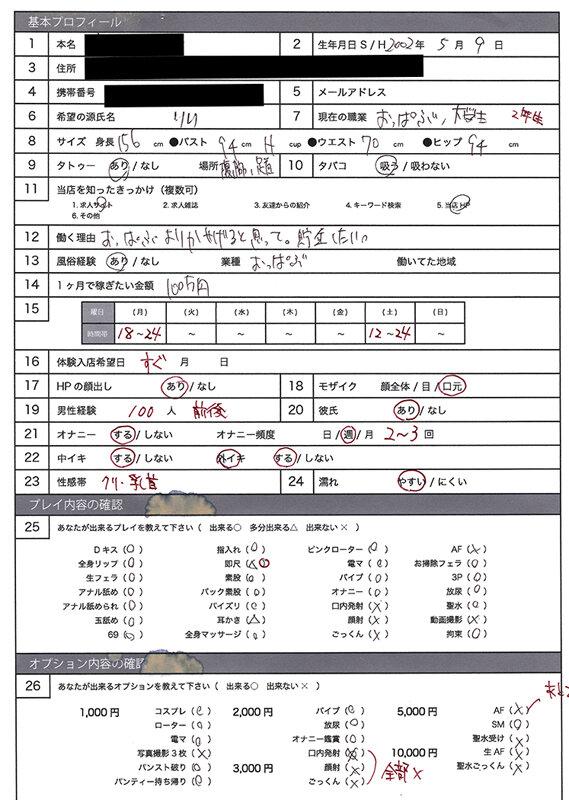 基本プロフィール
1 本名 2 生年月日 S / H 2002年 5月 9日
3 住所
4 携帯番号 5 メールアドレス
6 希望の源氏名 りり 7 現在の職業 おっぱぶ、大学生 2年生
8 サイズ 身長 156 cm ●バスト 94 cm H cup ●ウエスト 70 cm ●ヒップ 94 cm
9 タトゥー あり / なし 場所 10 タバコ 吸う / 吸わない
11 当店を知ったきっかけ(複数可)
1. 求人サイト 2. 求人雑誌 3. 友達からの紹介 4. キーワード検索 5. 当店HP
6. その他
12 働く理由 おっぱぶよりかせげると思って。貯金したい
13 風俗経験 あり / なし 業種 おっぱぶ 働いてた地域
14 1ヶ月で稼ぎたい金額 100万円
15 曜日 (月) (火) (水) (木) (金) (土) (日)
時間帯 18~24 ~ ~ ~ ~ 12~24 ~
16 体験入店希望日 すぐ 月 日
17 HPの顔出し あり / なし 18 モザイク 顔全体 / 目 / 口元
19 男性経験 100人 前後 20 彼氏 あり / なし
21 オナニー する / しない オナニー頻度 日 / 週 / 月 2~3 回
22 中イキ する / しない 外イキ する / しない
23 性感帯 クリ・乳首 24 濡れ やすい / にくい
プレイ内容の確認
25 あなたが出来るプレイを教えて下さい ( 出来る○ 多分出来る△ 出来ない× )
Dキス (○) 指入れ (○) ピンクローター (○) AF (×)
全身リップ (○) 即尺 (△○) 電マ (○) お掃除フェラ (○)
生フェラ (○) 素股 (○) バイブ (○) 3P (○)
アナル舐め (○) バック素股 (○) オナニー (○) 放尿 (○)
アナル舐められ (○) パイズリ (○) 口内発射 (×) 聖水 (○)
玉舐め (○) 耳かき (△) 顔射 (×) 動画撮影 (×)
69 (○) 全身マッサージ (○) ごっくん (×) 拘束 (○)
オプション内容の確認
26 あなたが出来るオプションを教えて下さい ( 出来る○ 出来ない× )
1,000円 コスプレ (○) 2,000円 バイブ (○) 5,000円 AF (×)
ローター (○) 放尿 (○) SM (○)
電マ (○) オナニー鑑賞 (○) 聖水受け (×)
写真撮影3枚 (×) 口内発射 (×) 10,000円 生AF (×)
パンスト破り (○) 3,000円 顔射 (×) 全部× 聖水ごっくん (×)
パンティー持ち帰り (○) ごっくん (×)